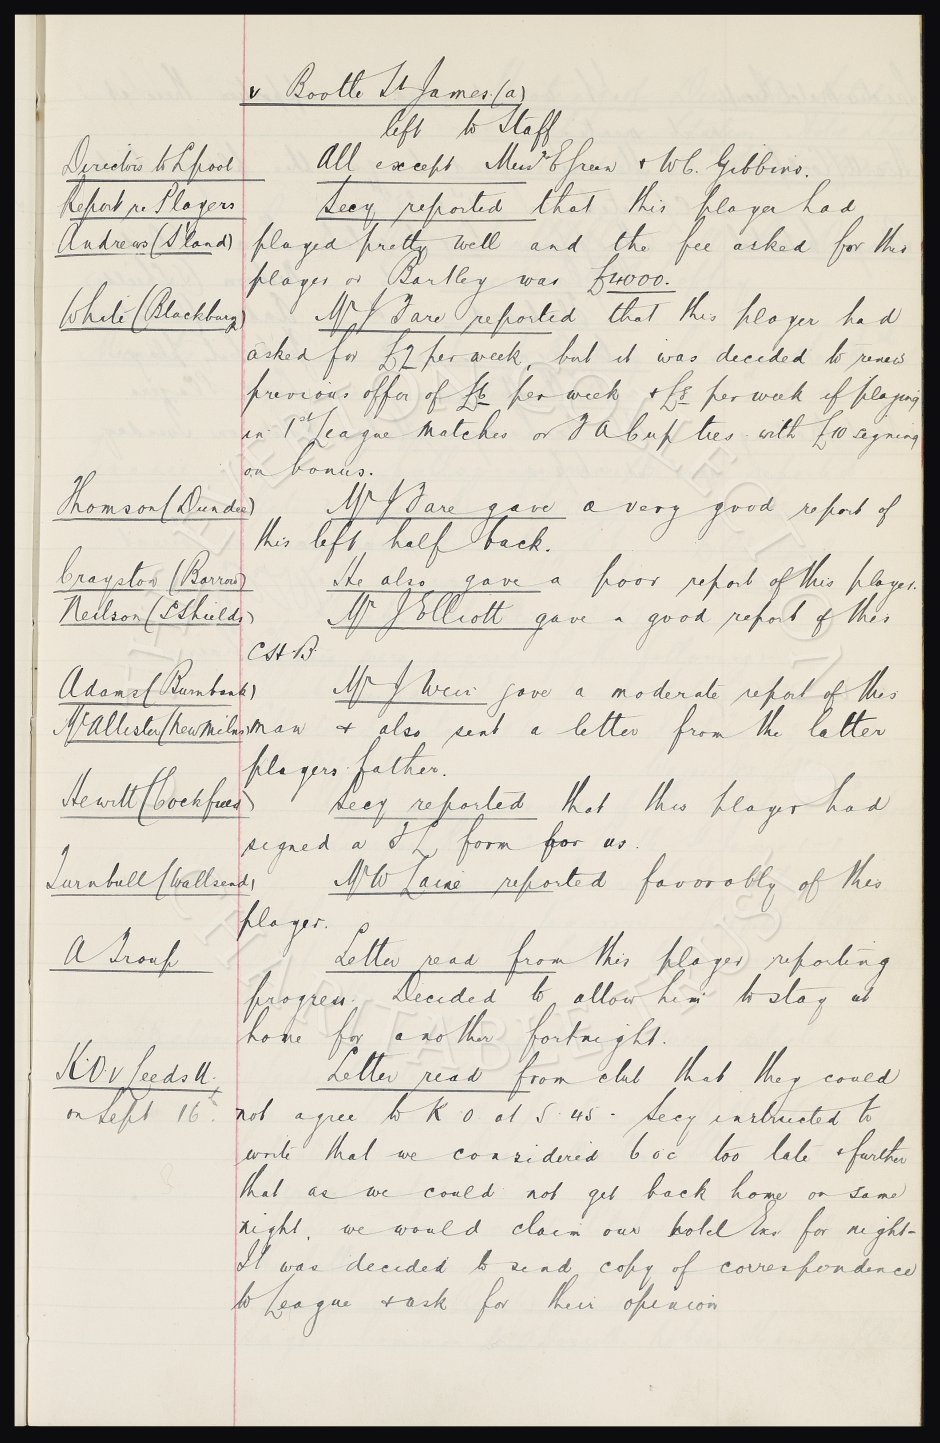 v Bootle St James (a)
left to Staff
Directors to Lpool All except Messrs E Green & W C. Gibbins.
Report re Players Secy reported that this player had
Andrews (S'land) played pretty well and the fee asked for this
player or Bartley was £4000.
White (Blackburn) Mr J Fare reported that this player had
asked for £7 per week, but it was decided to renew
previous offer of £6 per week & £8 per week if playing
in 1st League matches or F A Cup ties with £10 signing
on bonus.
Thomson (Dundee) Mr J Fare gave a very good report of
this left half back.
Crayston (Barrow) He also gave a poor report of this player.
Neilson (S Shields) Mr J Elliott gave a good report of this
C H B
Adams (Burnbank) Mr J Weir gave a moderate report of this
McAllister (New Milns) man & also sent a letter from the latter
players father.
Hewitt (Cockfield) Secy reported that this player had
signed a F L form for us.
Turnbull (Wallsend) Mr W Laine reported favorably of this
player.
A Troup Letter read from this player reporting
progress. Decided to allow him to stay at
home for another fortnight.
K.O v Leeds U. Letter read from club that they could
on Sept 16th. not agree to K O at 5.45 - Secy instructed to
write that we considered 6 oc too late & further
that as we could not get back home on same
night, we would claim our hotel Exs for night -
It was decided to send copy of correspondence
to League & ask for their opinion